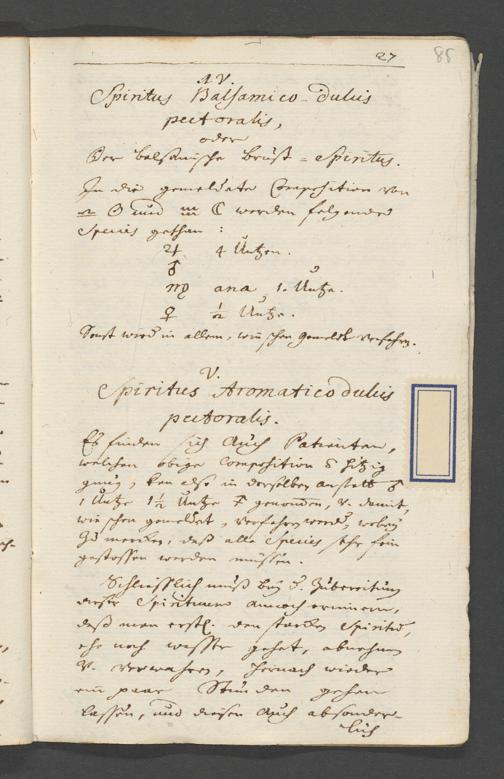 27
85
IV.
Spiritus Balsamico-dulcis
pectoralis,
oder
Der balsamische Brust-Spiritus.
In die gemeldete Composition von
♎ ☉ und ♏ ☾ werden folgende
Species gethan:
♃ 4 Untzen.
♂
♍ ana 1. Untze.
♀ ½ Untze.
Sonst wird in allem, wie schon gemeldt verfahren.
V.
Spiritus Aromatico dulcis
pectoralis.
Es finden sich auch Patienten,
welchen obige Composition hitzig
gnug, kan also in derselben anstatt ♂
1 Untze 1½ Untze genommen, v. damit,
wie schon gemeldet, verfahren werden, wobey
zu mercken, daß alle Species sehr fein
gestossen werden müssen.
Schliesslich muß bey d. Zubereitung
dieser Spirituum annoch erinnern,
daß man erstl. den starcken Spiritus,
ehe noch wässer gehet, abnehmen
v. verwahren, hernach wieder
ein paar Stunden gehen
lassen, und diesen auch absonder-
lich